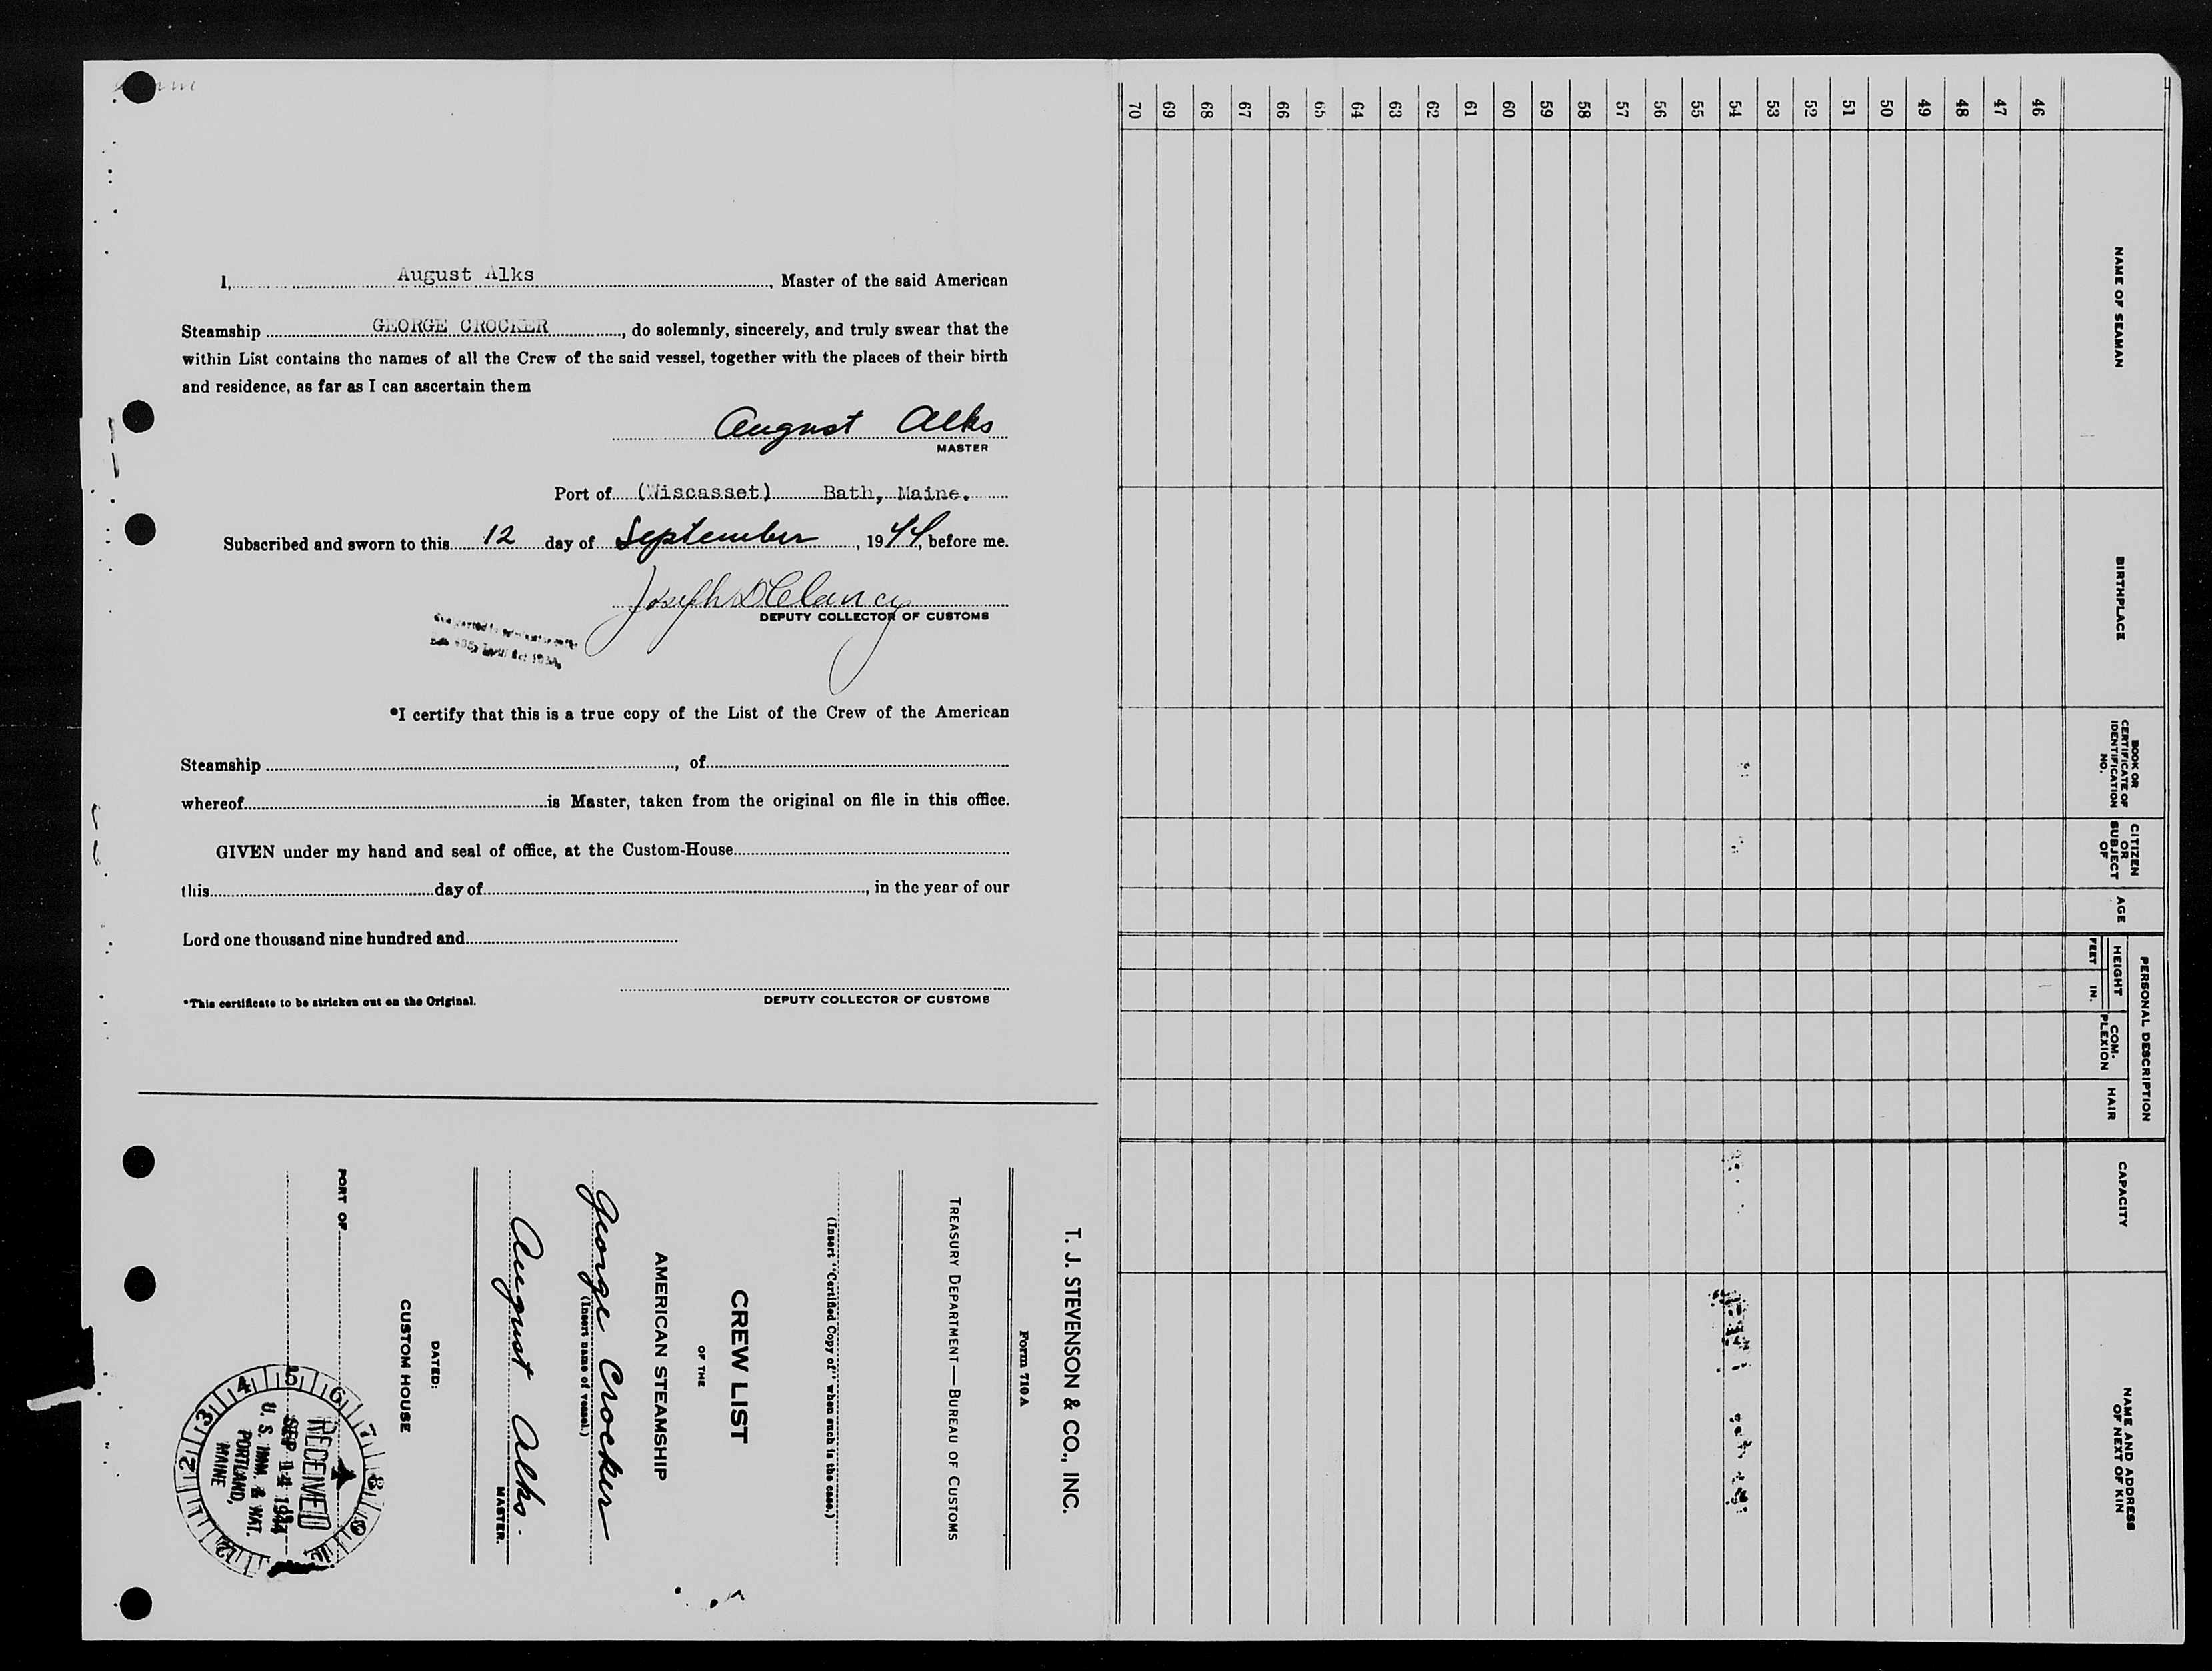 I, August Alks, Master of the said American
Steamship GEORGE CROCKER, do solemnly, sincerely, and truly swear that the
within List contains the names of all the Crew of the said vessel, together with the places of their birth
and residence, as far as I can ascertain them
August Alks
MASTER
Port of (Wiscasset) Bath, Maine.
Subscribed and sworn to this 12 day of September, 1944, before me.
Joseph D Clancy
DEPUTY COLLECTOR OF CUSTOMS
*I certify that this is a true copy of the List of the Crew of the American
Steamship, of
whereof is Master, taken from the original on file in this office.
GIVEN under my hand and seal of office, at the Custom-House
this day of, in the year of our
Lord one thousand nine hundred and
DEPUTY COLLECTOR OF CUSTOMS
*This certificate to be stricken out on the Original.
T. J. STEVENSON & CO., INC.
Form 710A
TREASURY DEPARTMENT—BUREAU OF CUSTOMS
(Insert "Certified Copy of" when such is the case.)
CREW LIST
OF THE
AMERICAN STEAMSHIP
George Crocker
(Insert name of vessel.)
August Alks.
MASTER.
DATED:
CUSTOM HOUSE
PORT OF
RECEIVED
SEP 14 1944
U. S. IMM. & NAT.
PORTLAND,
MAINE
1 2 3 4 5 6 7 8 12
NAME OF SEAMAN
BIRTHPLACE
BOOK OR
CERTIFICATE OF
IDENTIFICATION
NO.
CITIZEN
OR
SUBJECT
OF
AGE
PERSONAL DESCRIPTION
HEIGHT
FEET IN.
COM-
PLEXION
HAIR
CAPACITY
NAME AND ADDRESS
OF NEXT OF KIN
46
47
48
49
50
51
52
53
54
55
56
57
58
59
60
61
62
63
64
65
66
67
68
69
70